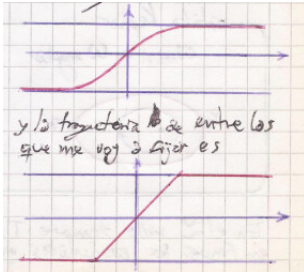 y la trayectoria de entre las
que me voy a fijar es